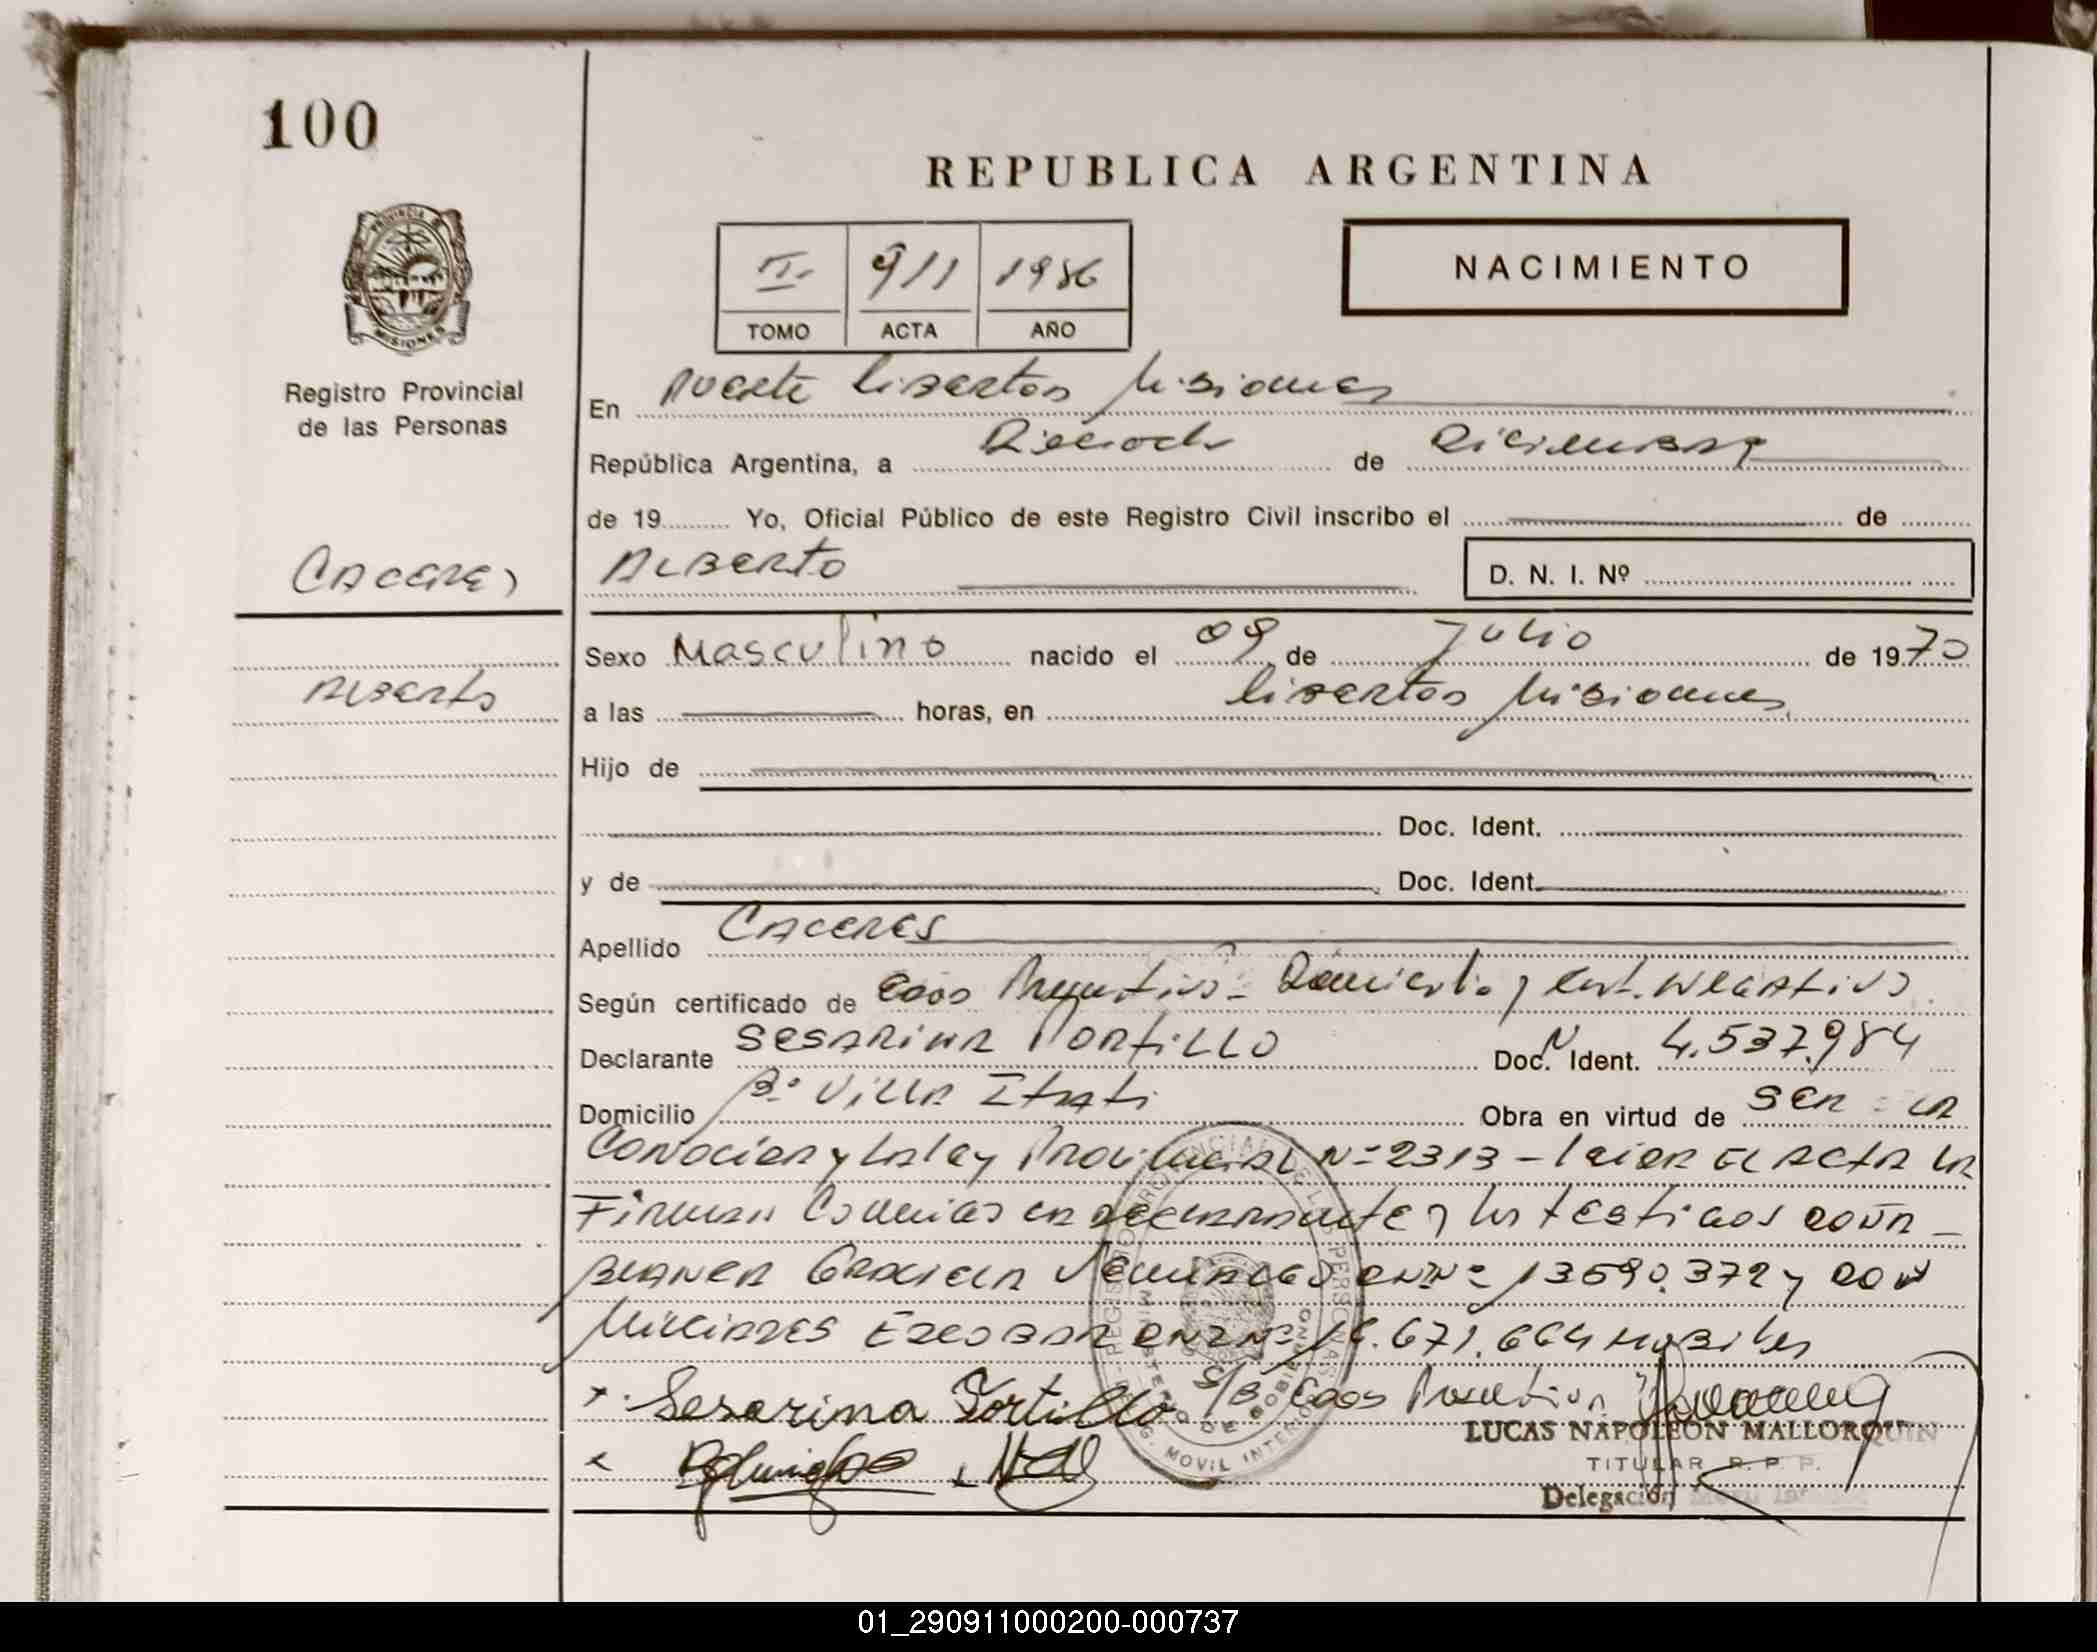 100
REPUBLICA ARGENTINA
PROVINCIA DE MISIONES
II 911 1986
TOMO ACTA AÑO
NACIMIENTO
Registro Provincial
de las Personas
En Puerto Libertad Misiones
República Argentina, a Dieciocho de Diciembre
de 19 Yo, Oficial Público de este Registro Civil inscribo el de
CACERES
ALBERTO
D. N. I. Nº
Sexo Masculino nacido el 09 de Julio de 1970
ALBERTO
a las horas, en Libertad Misiones
Hijo de
Doc. Ident.
y de Doc. Ident.
Apellido CACERES
Según certificado de Negativo
Declarante SESARINA PORTILLO Doc. Ident. 4.537.984
Domicilio Bº Villa Itati Obra en virtud de SER LA
CONOCIDA y LA Ley Provincial Nº 2313 - Leida EL ACTA LA
Firman Conmigo LA DECLARANTE y los testigos DOÑA
BLANCA Graciela DNI Nº 13590.372 y DON
ESCOBAR DNI Nº 671.664
Sesarina Portillo S/B
LUCAS NAPOLEON MALLORQUIN
TITULAR R. P. P.
Delegación
REGISTRO PROVINCIAL DE LAS PERSONAS
MINISTERIO DE GOBIERNO
MOVIL INTERIOR
01_290911000200-000737